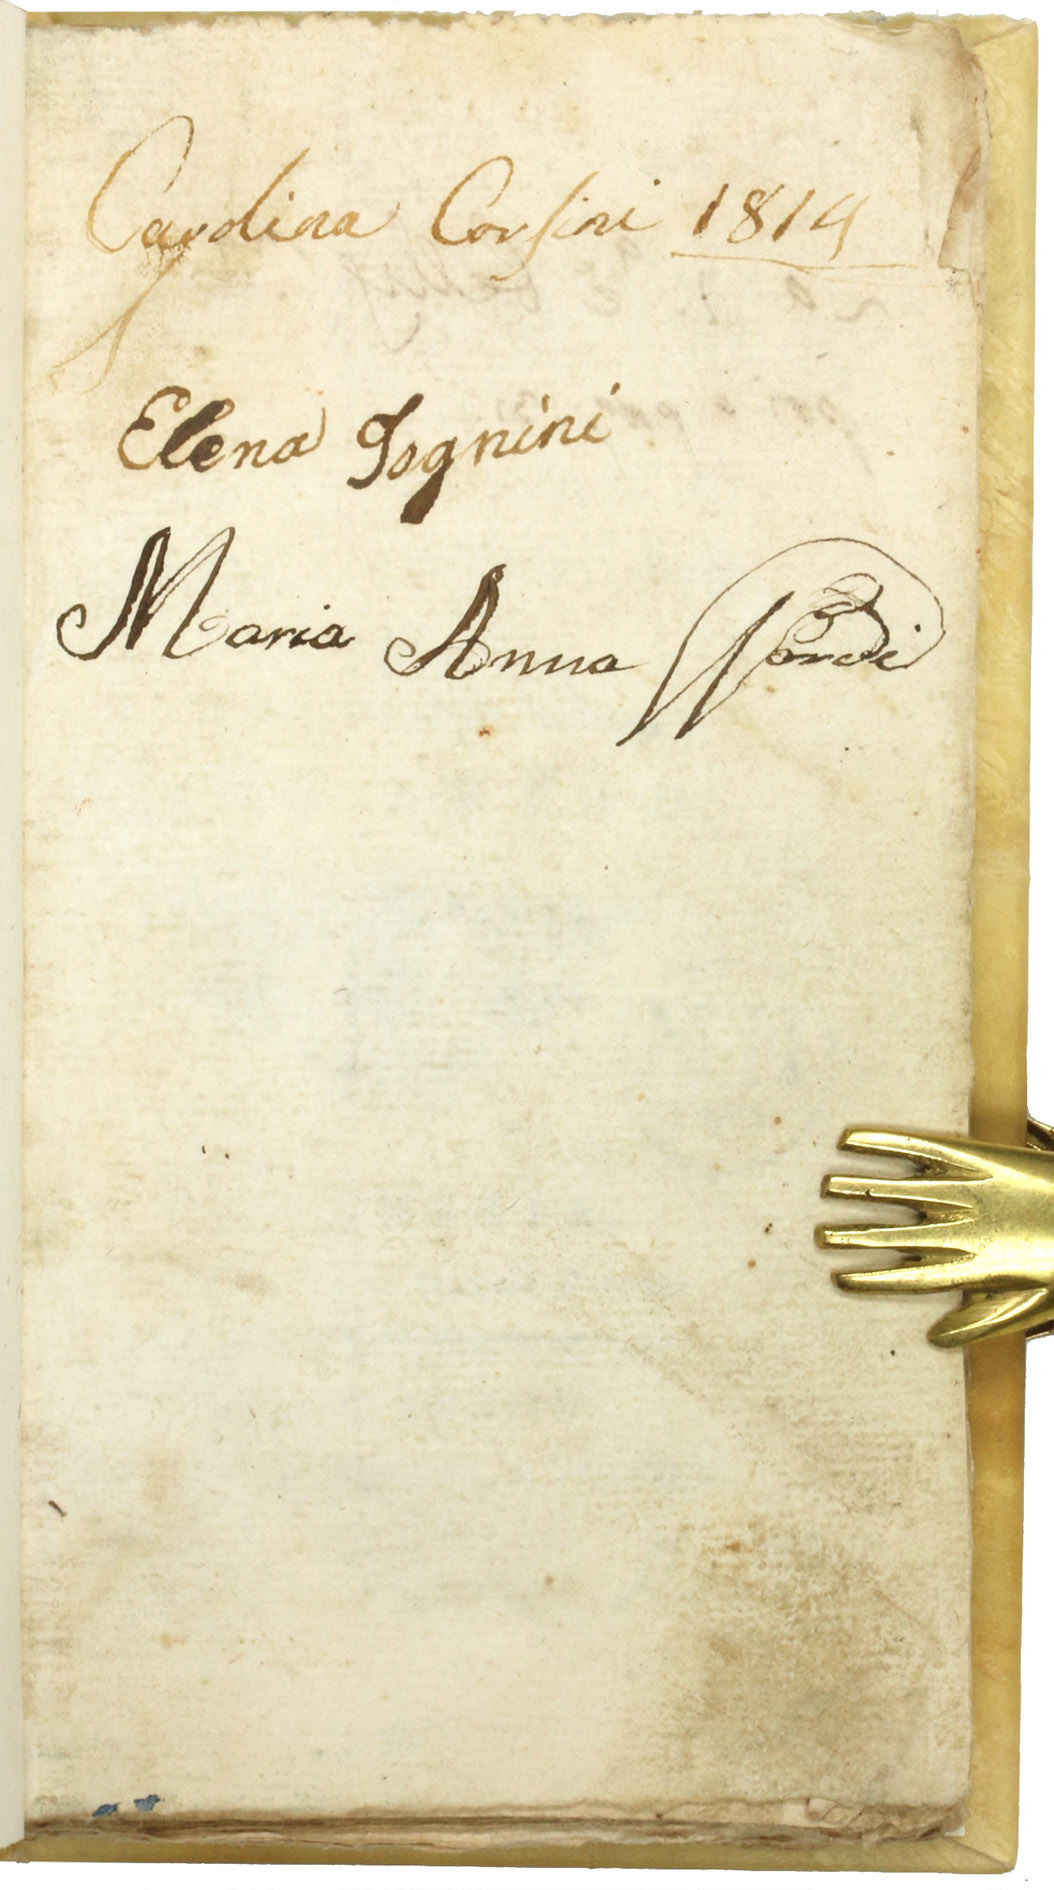 Carolina Corsini 1814
Elena Tognini
Maria Anna Nardi